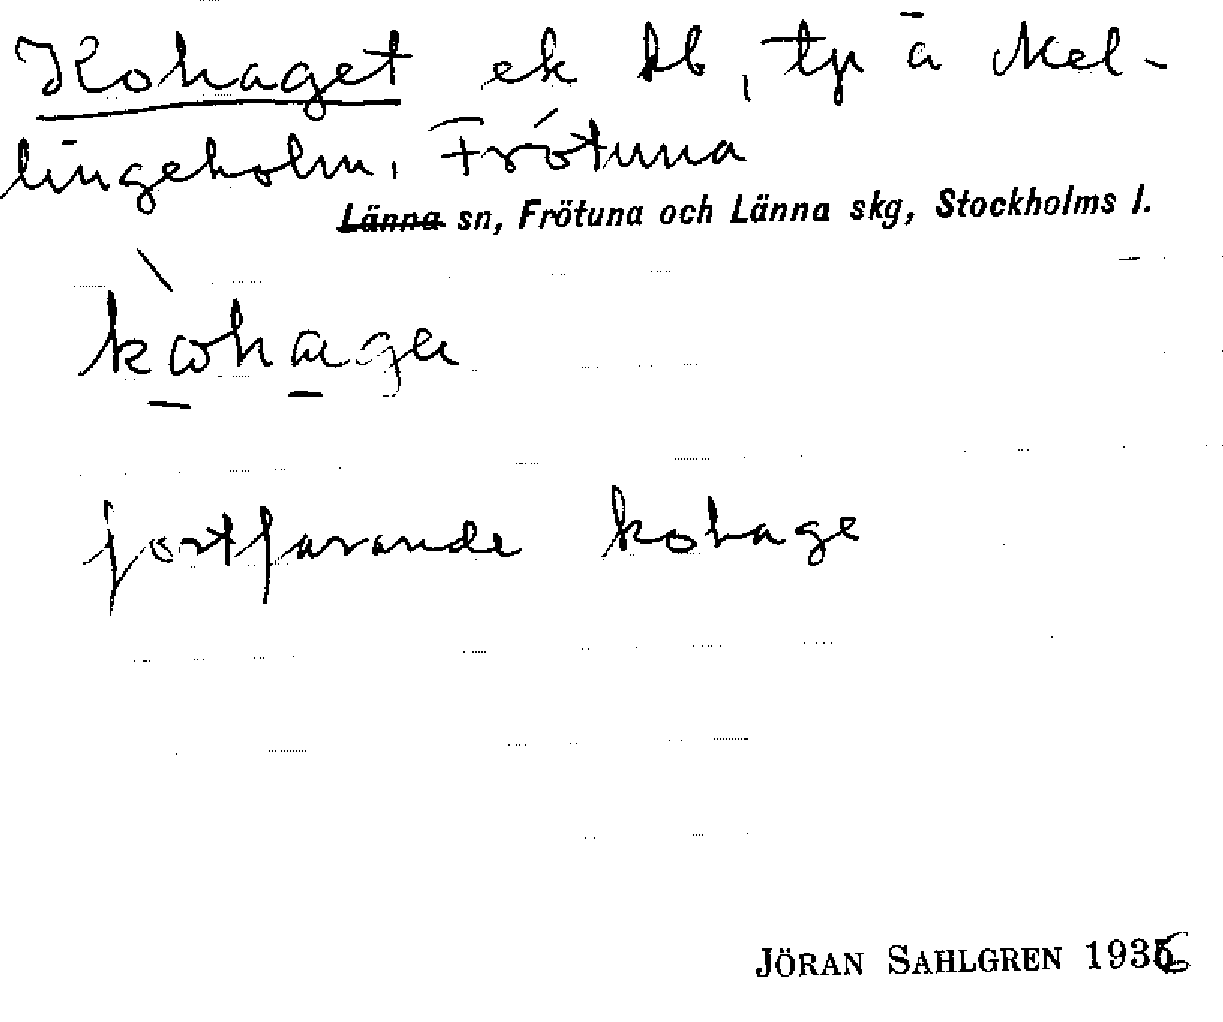 Kohaget ek kb, tp å Mel-
lingeholm, Frötuna
Länna sn, Frötuna och Länna skg, Stockholms l.
kohagen
fortfarande kohage
JÖRAN SAHLGREN 1936